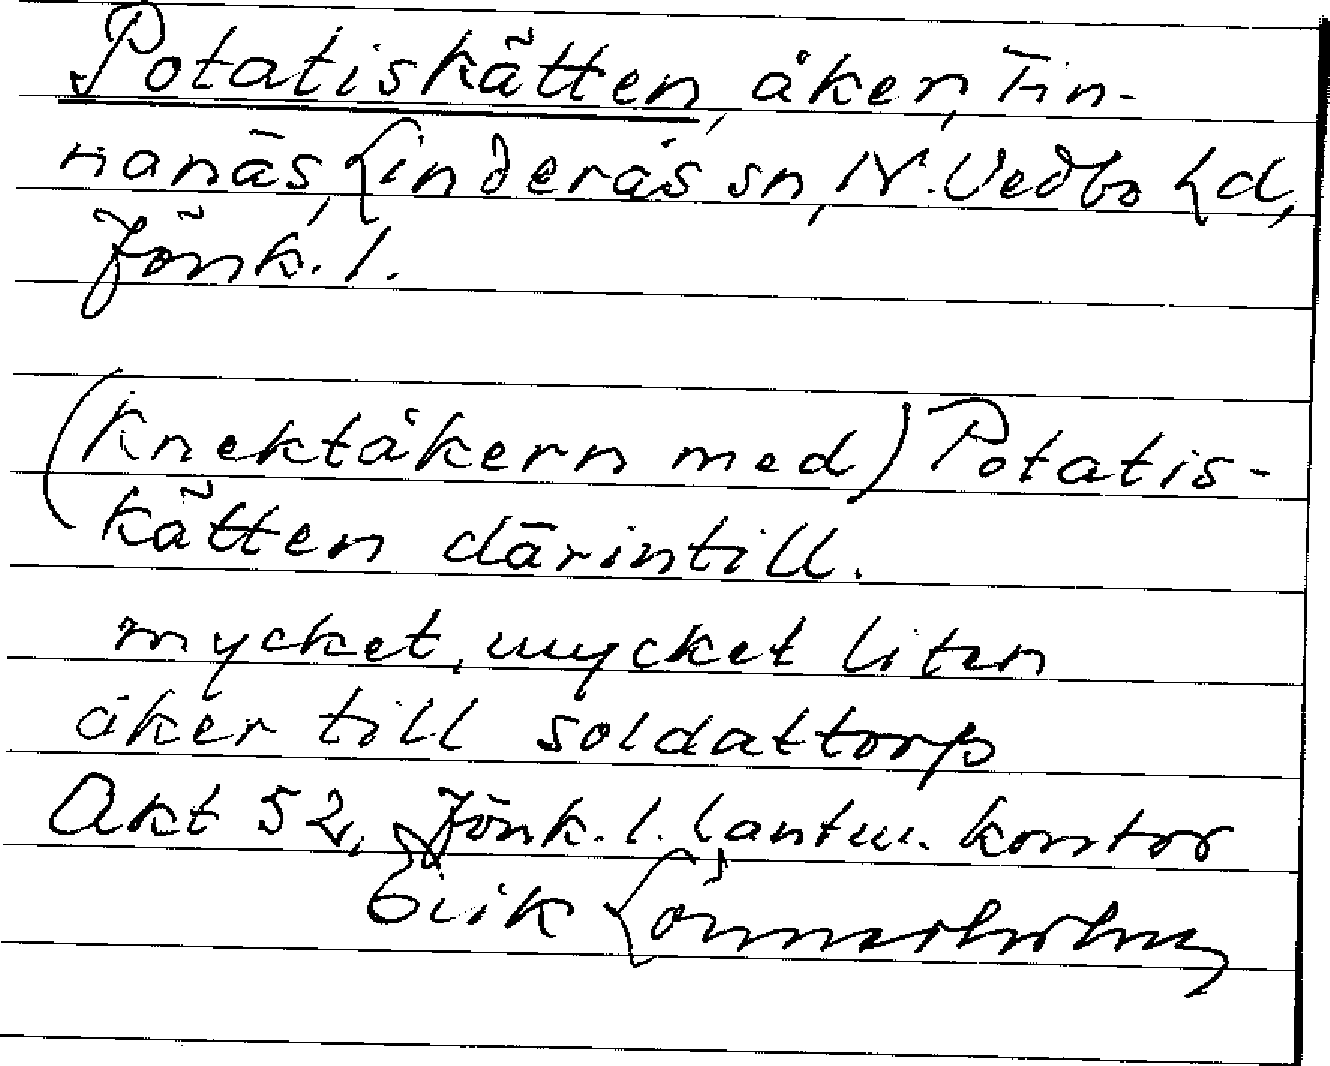 Potatiskätten, åker, Fin-
nanäs, Linderås sn, N. Vedbo hd,
Jönk. l.
(Knektåkern med) Potatis-
kätten därintill.
mycket, mycket liten
åker till soldattorp
Akt 52, Jönk. l. lantm. kontor
Erik Lönnerholm